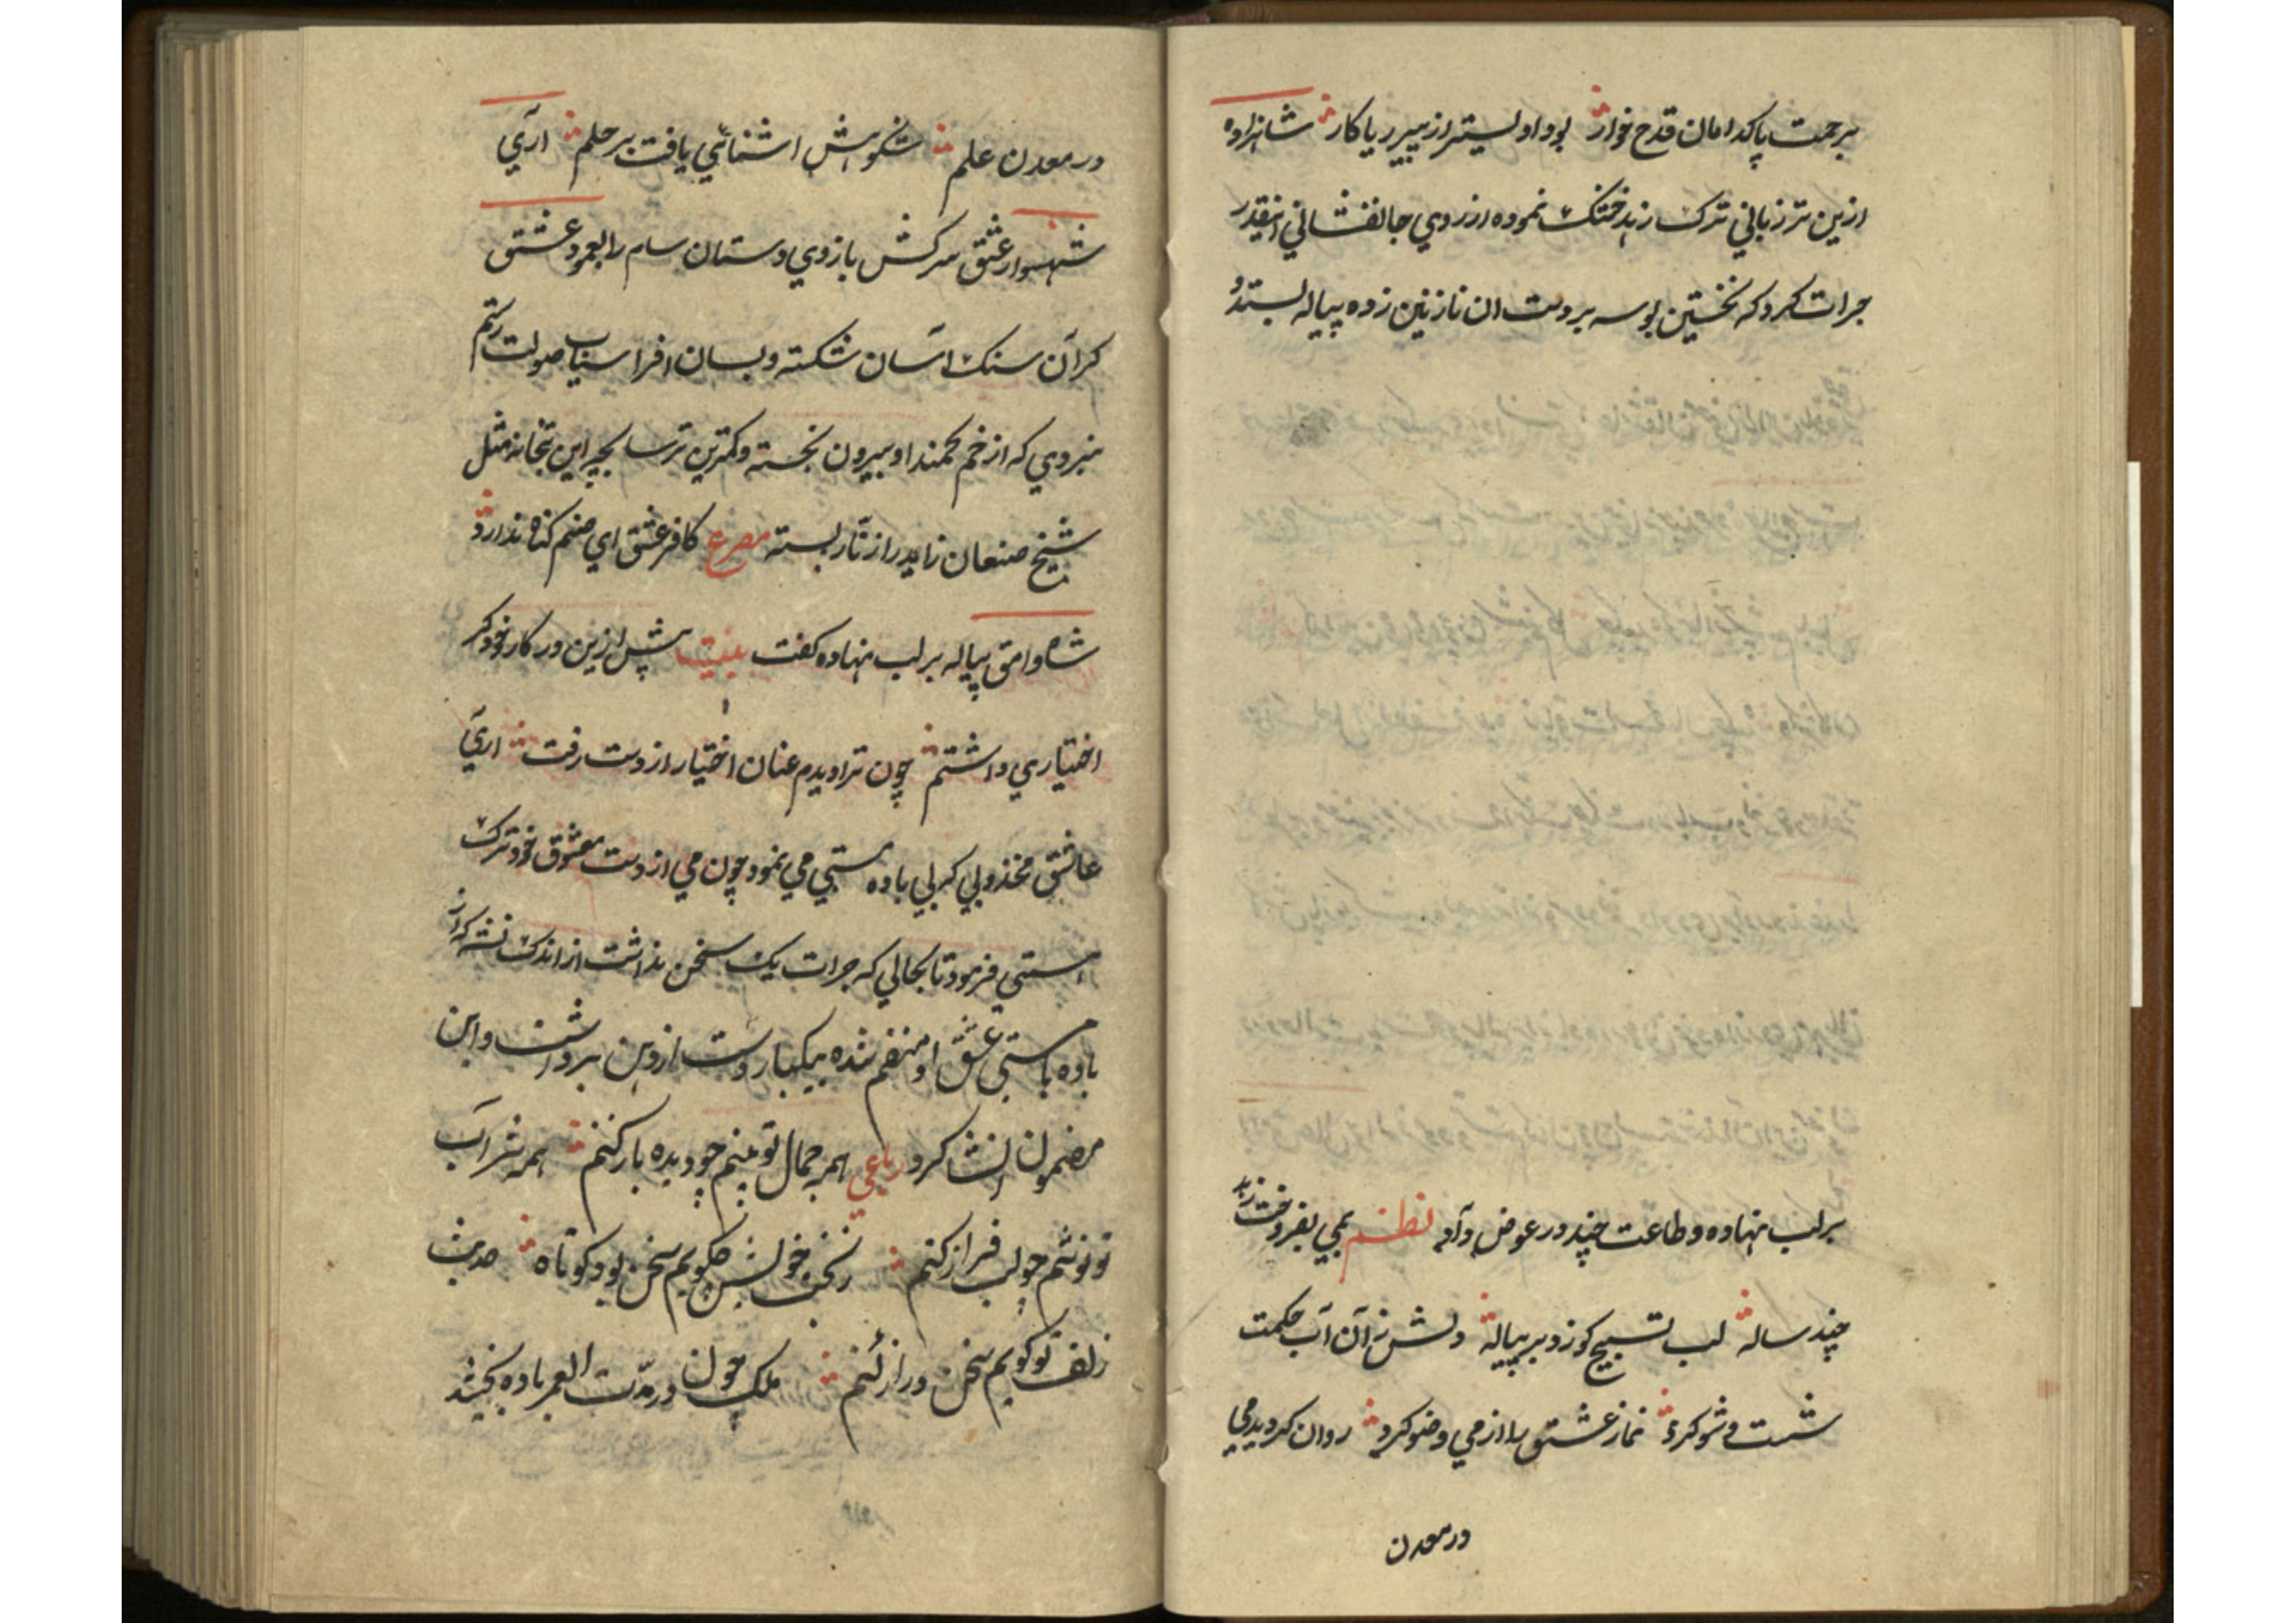 برحمت پاکدامان قدح خوار بود اولیتر از پیر ریاکار شاهزاده
ازین تر زبانی ترک زهد خشک نموده از روی جانفشانی اینقدر
جرات کرد که نخستین بوسه بر دست ان نازنین زده پیاله بستد و
بر لب نهاده و طاعت چند در عوض داد نظم بمی بفروخت زهد
چند ساله لب تسبیح کو زد بر پیاله دلش ز آن آب حکمت
شست و شو کرد نماز عشق را از می وضو کرد روان گردید می
در معدن
در معدن علم شکوهش اشنائی یافت بر حلم اری
شهسوار عشق سرکش بازوی دستان سام را بعمود عشق
گران سنک اسان شکسته و بسان افراسیاب صولت رستم
نبردی که از خم کمند او بیرون نجسته و کمترین ترسا بچه این بتخانه مثل
شیخ صنعان زاهد را زنّار بسته مصرع کافر عشق ای صنم کناه ندارد
شاه وامق پیاله بر لب نهاده کفت بیت پیش ازین در کار خود کر
اختیاری داشتم چون ترا دیدم عنان اختیار از دست رفت اری
عاشق مجذوبی که بی باده مستی می نمود چون می از دست معشوق خود ترک
مستی فرمود تا بحالی که جرات یک سخن نداشت از اندک نشه که از
باده با مستی عشق او منضم شده بیکبار دست از دهن برداشت و این
مضمون انشا کرد رباعی همه جمال تو بینم چو دیده باز کنم همه شراب
تو نوشم چو لب فراز کنم ز نخل خویش چکویم سخن بود کوتاه حدیث
زلف تو کویم سخن دراز کنم ملک چون در مدّت العمر باده نخشید